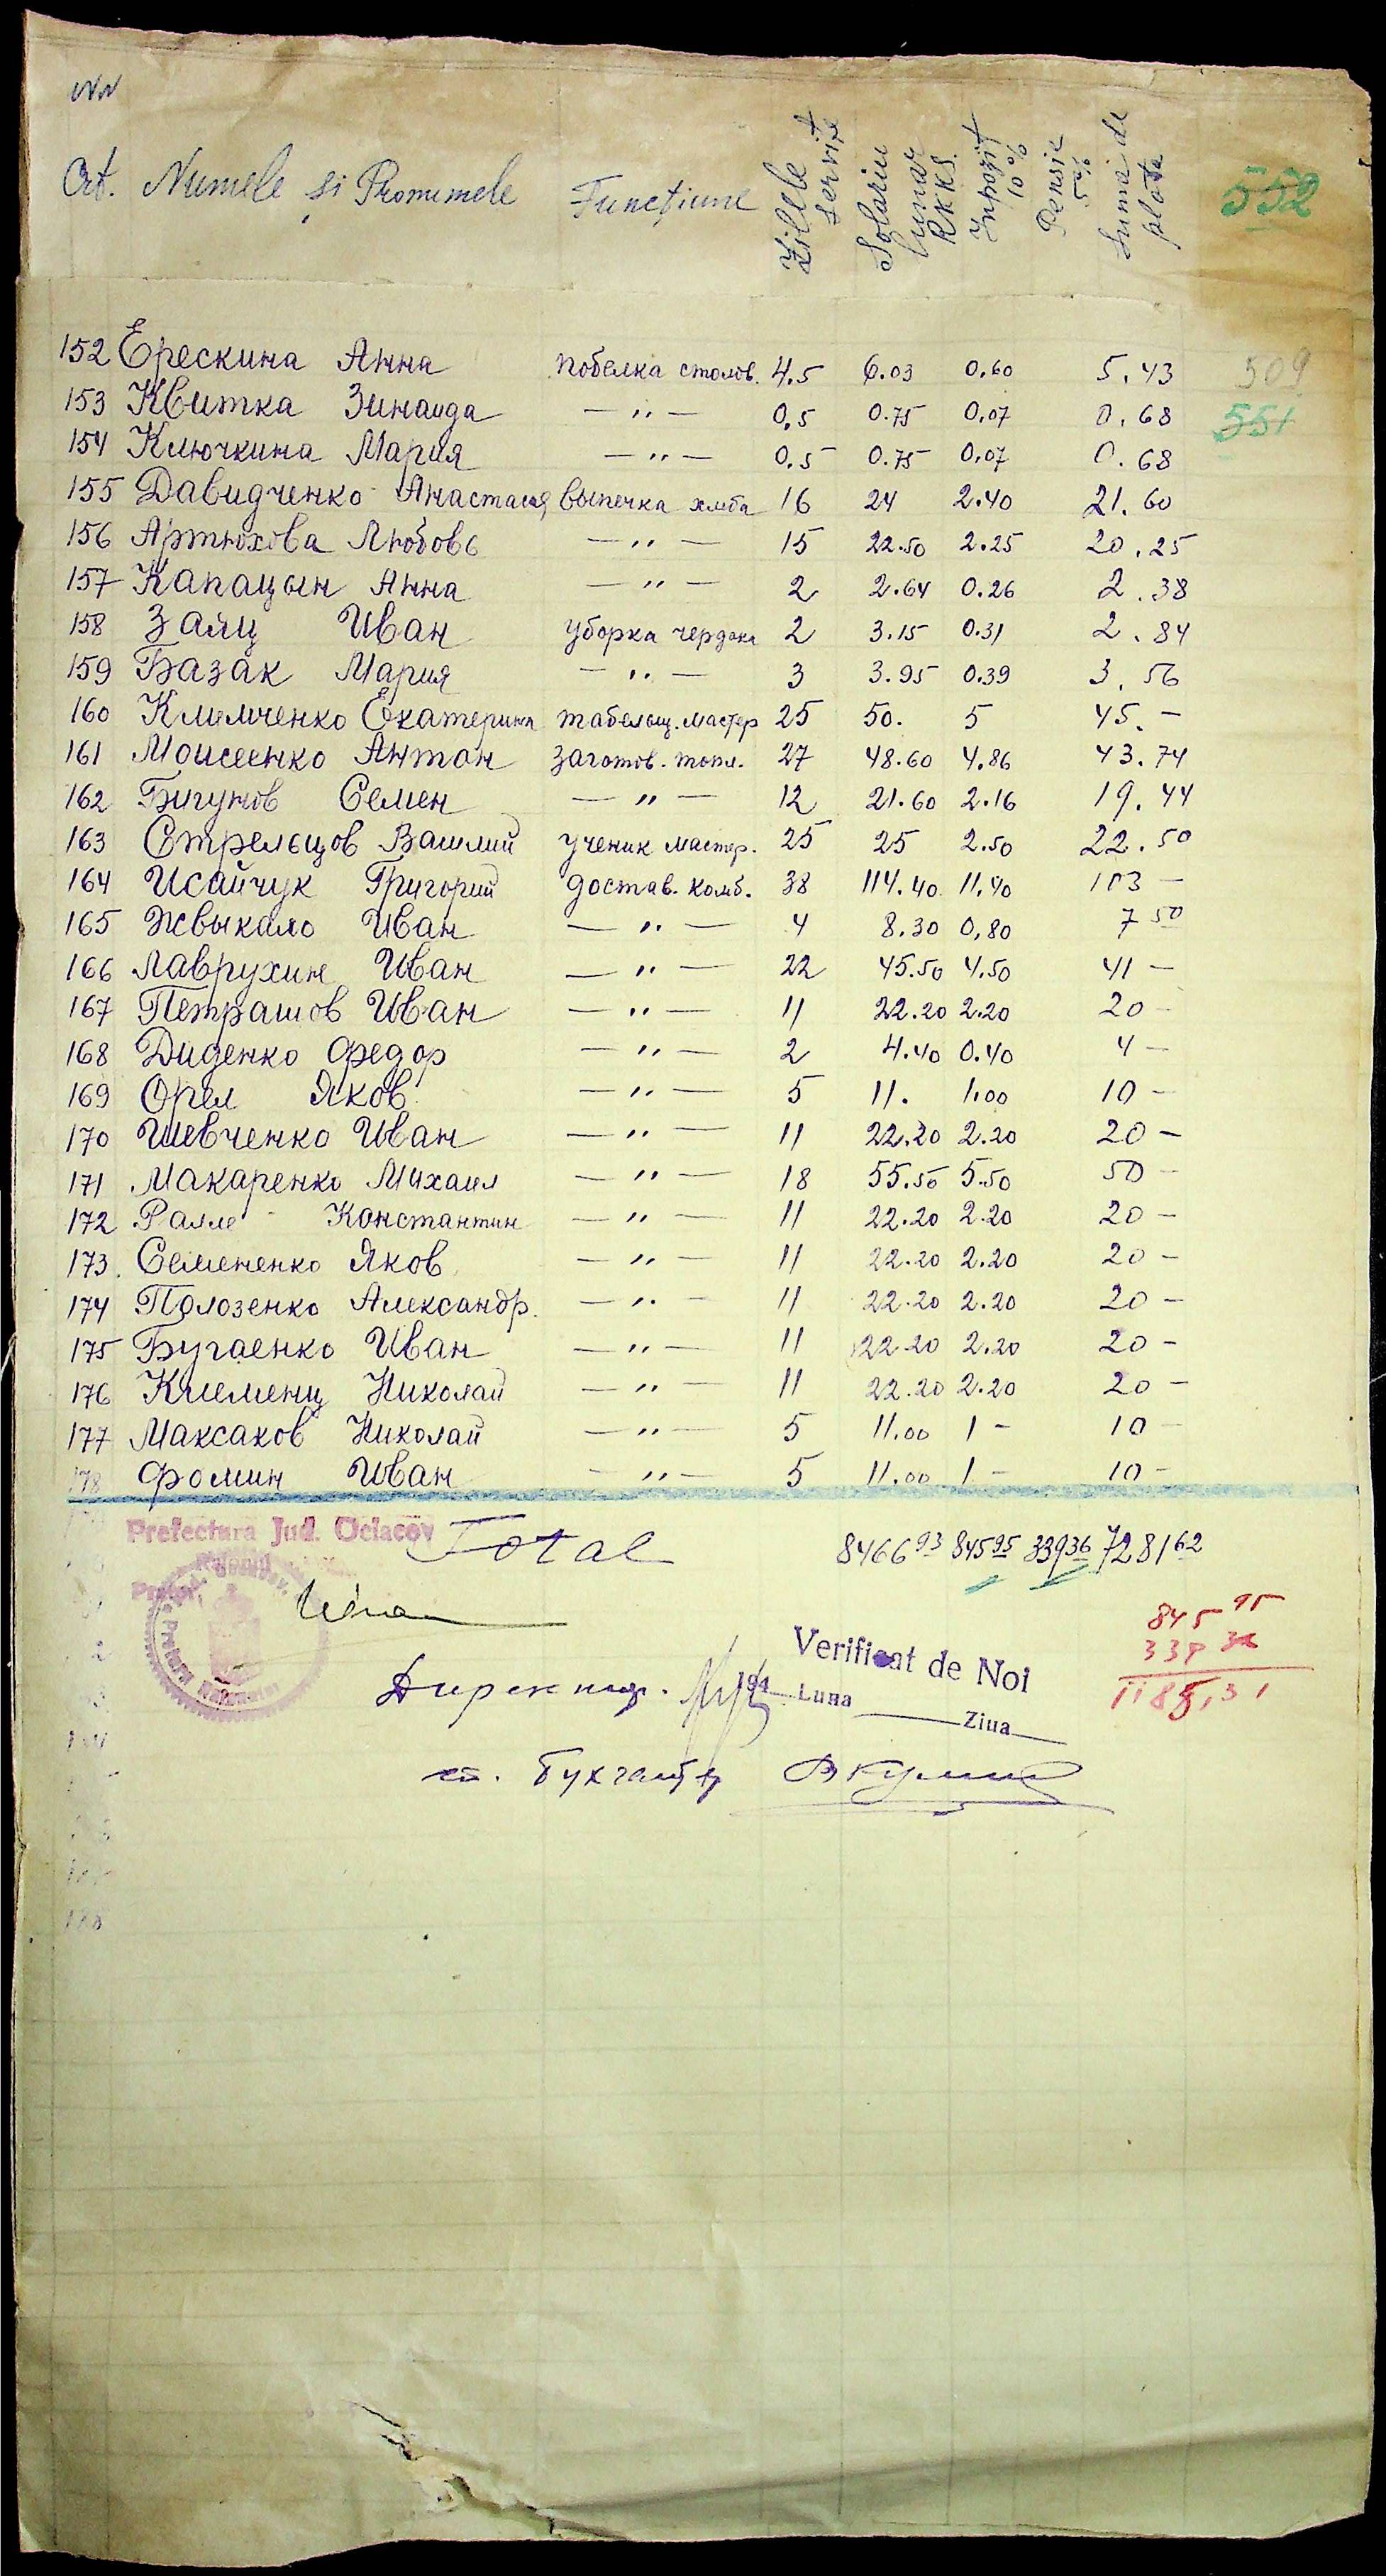 NN
Crt. Numele și Pronumele Funcțiune Zilele servite Solariu lunar RKKS. Inpozit 10% Pensie 5% Suma de plata 552
152 Ерескина Анна побелка столов. 4.5 6.03 0.60 5.43 509
153 Квитка Зинаида —"— 0,5 0.75 0,07 0.68 551
154 Ключкина Мария —"— 0.5 0.75 0,07 0.68
155 Давидченко Анастасия выпечка хлеба 16 24 2.40 21.60
156 Артюхова Любовь —"— 15 22.50 2.25 20.25
157 Капацын Анна —"— 2 2.64 0.26 2.38
158 Заяц Иван уборка чердака 2 3.15 0.31 2.84
159 Базак Мария —"— 3 3.95 0.39 3.56
160 Климченко Екатерина табельщ. мастер 25 50. 5 45.—
161 Моисеенко Антон заготов. топл. 27 48.60 4.86 43.74
162 Бигунов Семен —"— 12 21.60 2.16 19.44
163 Стрельцов Василий ученик мастер. 25 25 2.50 22.50
164 Исайчук Григорий достав. комб. 38 114.40 11.40 103 —
165 Жвыкало Иван —"— 4 8.30 0,80 7 50
166 Лаврухин Иван —"— 22 45.50 4.50 41 —
167 Петрашов Иван —"— 11 22.20 2.20 20 —
168 Диденко Федор —"— 2 4.40 0.40 4 —
169 Орел Яков —"— 5 11. 1.00 10 —
170 Шевченко Иван —"— 11 22.20 2.20 20 —
171 Макаренко Михаил —"— 18 55.50 5.50 50 —
172 Ралле Константин —"— 11 22.20 2.20 20 —
173. Семененко Яков —"— 11 22.20 2.20 20 —
174 Полозенко Александр. —"— 11 22.20 2.20 20 —
175 Бугаенко Иван —"— 11 22.20 2.20 20 —
176 Клеменц Николай —"— 11 22.20 2.20 20 —
177 Максаков Николай —"— 5 11.00 1 — 10 —
178 Фомин Иван —"— 5 11.00 1 — 10 —
Prefectura Jud. Ociacov
Total 8466 93 845 95 339 36 7281 62
845 95
339 36
1185,31
Verificat de Noi
Директор. 194 Luna Ziua
ст. Бухгалтер